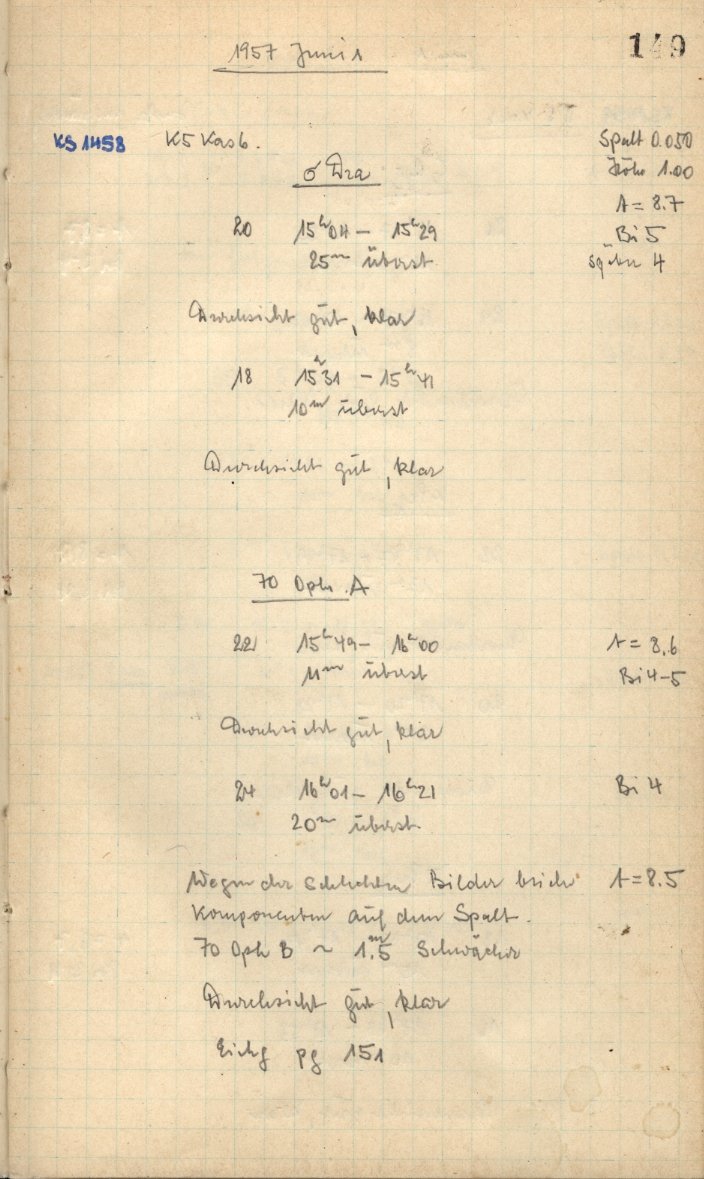 149
1957 Juni 1
KS 1458 K5 Kas6. Spalt 0.050
Höhe 1.00
σ Dra
A = 8.7
20 15ʰ04 – 15ʰ29 Bi 5
25ᵐ überst später 4
Durchsicht gut, klar
18 15ʰ31 – 15ʰ41
10ᵐ überst
Durchsicht gut, klar
70 Oph. A
22 15ʰ49 – 16ʰ00 A = 8.6
11ᵐ überst Bi 4-5
Durchsicht gut, klar
24 16ʰ01 – 16ʰ21 Bi 4
20ᵐ überst
Wegen der schlechten Bilder beide A = 8.5
Komponenten auf dem Spalt.
70 Oph B ~ 1ᵐ.5 Schwächer
Durchsicht gut, klar
Eichg pg 151